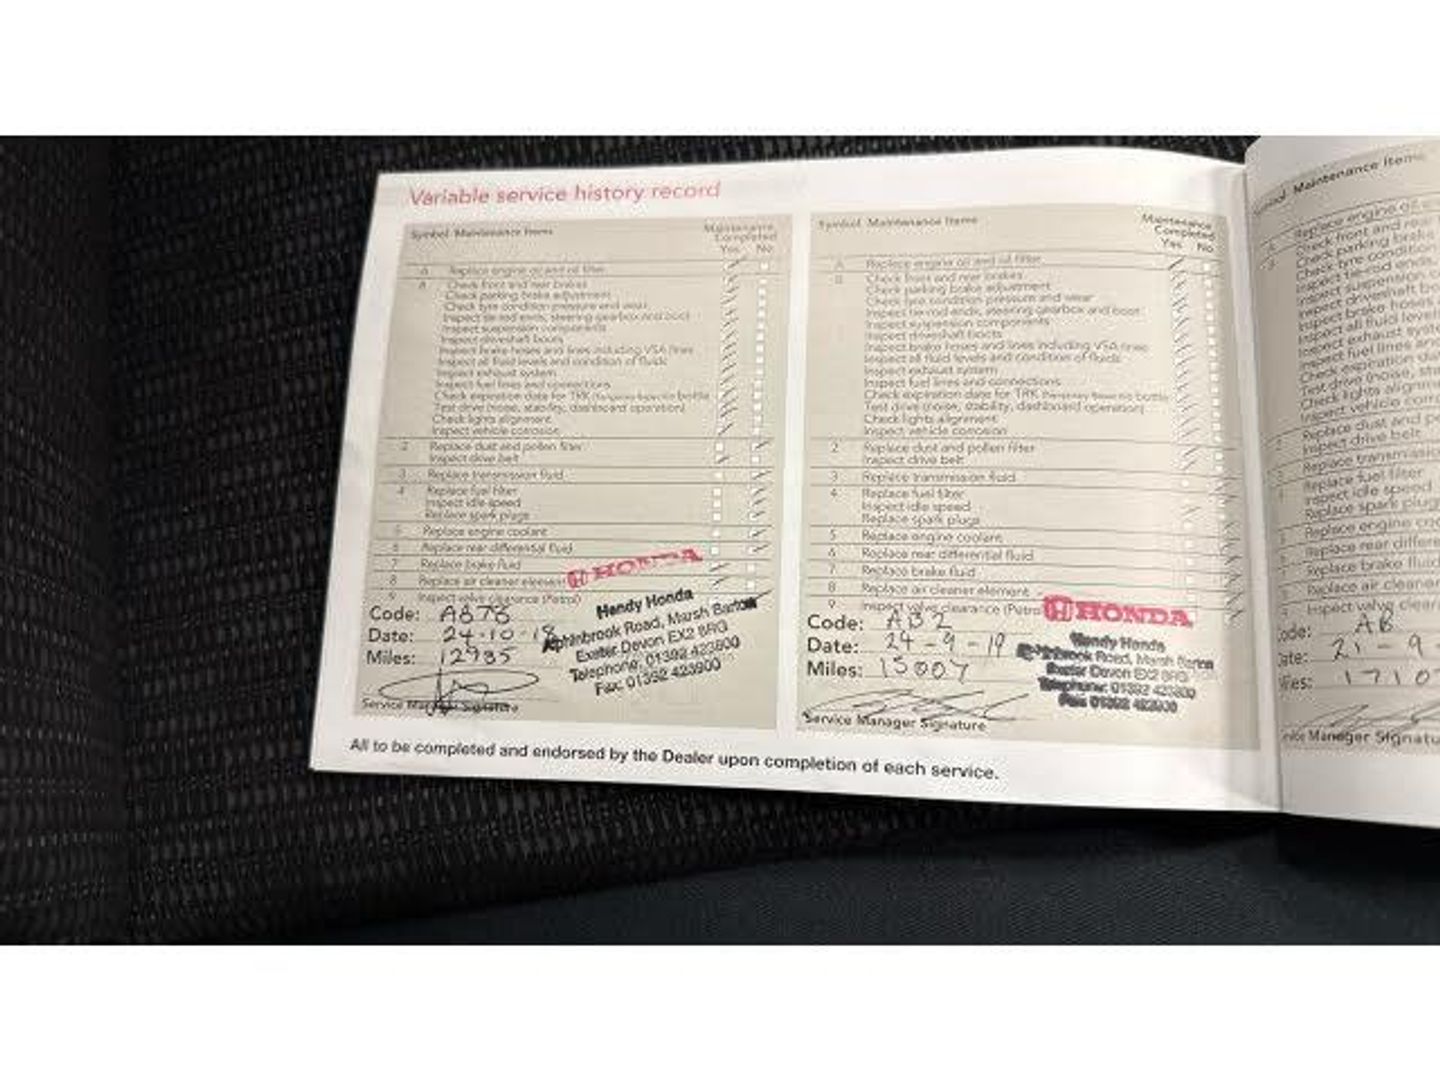 Variable service history record
Symbol Maintenance Items
Maintenance
Completed
Yes No
A Replace engine oil and oil filter
Check front and rear brakes
Check parking brake adjustment
Check tyre condition pressure and wear
Inspect tie-rod ends, steering gearbox and boot
Inspect suspension components
Inspect driveshaft boots
Inspect brake hoses and lines including VSA lines
Inspect all fluid levels and condition of fluids
Inspect exhaust system
Inspect fuel lines and connections
Check expiration date for TRK bottle
Test drive (noise, stability, dashboard operation)
Check lights alignment
Inspect vehicle corrosion
2 Replace dust and pollen filter
Inspect drive belt
3 Replace transmission fluid
4 Replace fuel filter
Inspect idle speed
Replace spark plugs
5 Replace engine coolant
6 Replace rear differential fluid
7 Replace brake fluid
8 Replace air cleaner element
9 Inspect valve clearance (Petrol)
HONDA
Hendy Honda
Road, Marsh Barton
Exeter Devon EX2 8RG
Telephone: 01392 423800
Fax: 01392 423900
Code: AB78
Date: 24-10-18
Miles: 12935
Service Manager Signature
Symbol Maintenance Items
Maintenance
Completed
Yes No
A Replace engine oil and oil filter
B Check front and rear brakes
Check parking brake adjustment
Check tyre condition pressure and wear
Inspect tie-rod ends, steering gearbox and boot
Inspect suspension components
Inspect driveshaft boots
Inspect brake hoses and lines including VSA lines
Inspect all fluid levels and condition of fluids
Inspect exhaust system
Inspect fuel lines and connections
Check expiration date for TRK bottle
Test drive (noise, stability, dashboard operation)
Check lights alignment
Inspect vehicle corrosion
2 Replace dust and pollen filter
Inspect drive belt
3 Replace transmission fluid
4 Replace fuel filter
Inspect idle speed
Replace spark plugs
5 Replace engine coolant
6 Replace rear differential fluid
7 Replace brake fluid
8 Replace air cleaner element
9 Inspect valve clearance (Petrol
HONDA
Hendy Honda
Road, Marsh Barton
Exeter Devon EX2 8RG
Telephone: 01392 423800
Fax: 01392 423900
Code: AB2
Date: 24-9-19
Miles: 15007
Service Manager Signature
All to be completed and endorsed by the Dealer upon completion of each service.
Maintenance Items
Replace engine oil
Check front and rear
Check parking brake
Check tyre condition
Inspect tie-rod ends,
Inspect suspension
Inspect driveshaft
Inspect brake hoses
Inspect all fluid levels
Inspect exhaust
Inspect fuel lines
Check expiration
Test drive (noise,
Check lights
Inspect vehicle
Replace dust and
Inspect drive belt
Replace
Replace fuel filter
Inspect idle speed
Replace spark plugs
Replace engine
Replace rear
Replace brake fluid
Replace air cleaner
Inspect valve
AB
21-9-
1710
Manager